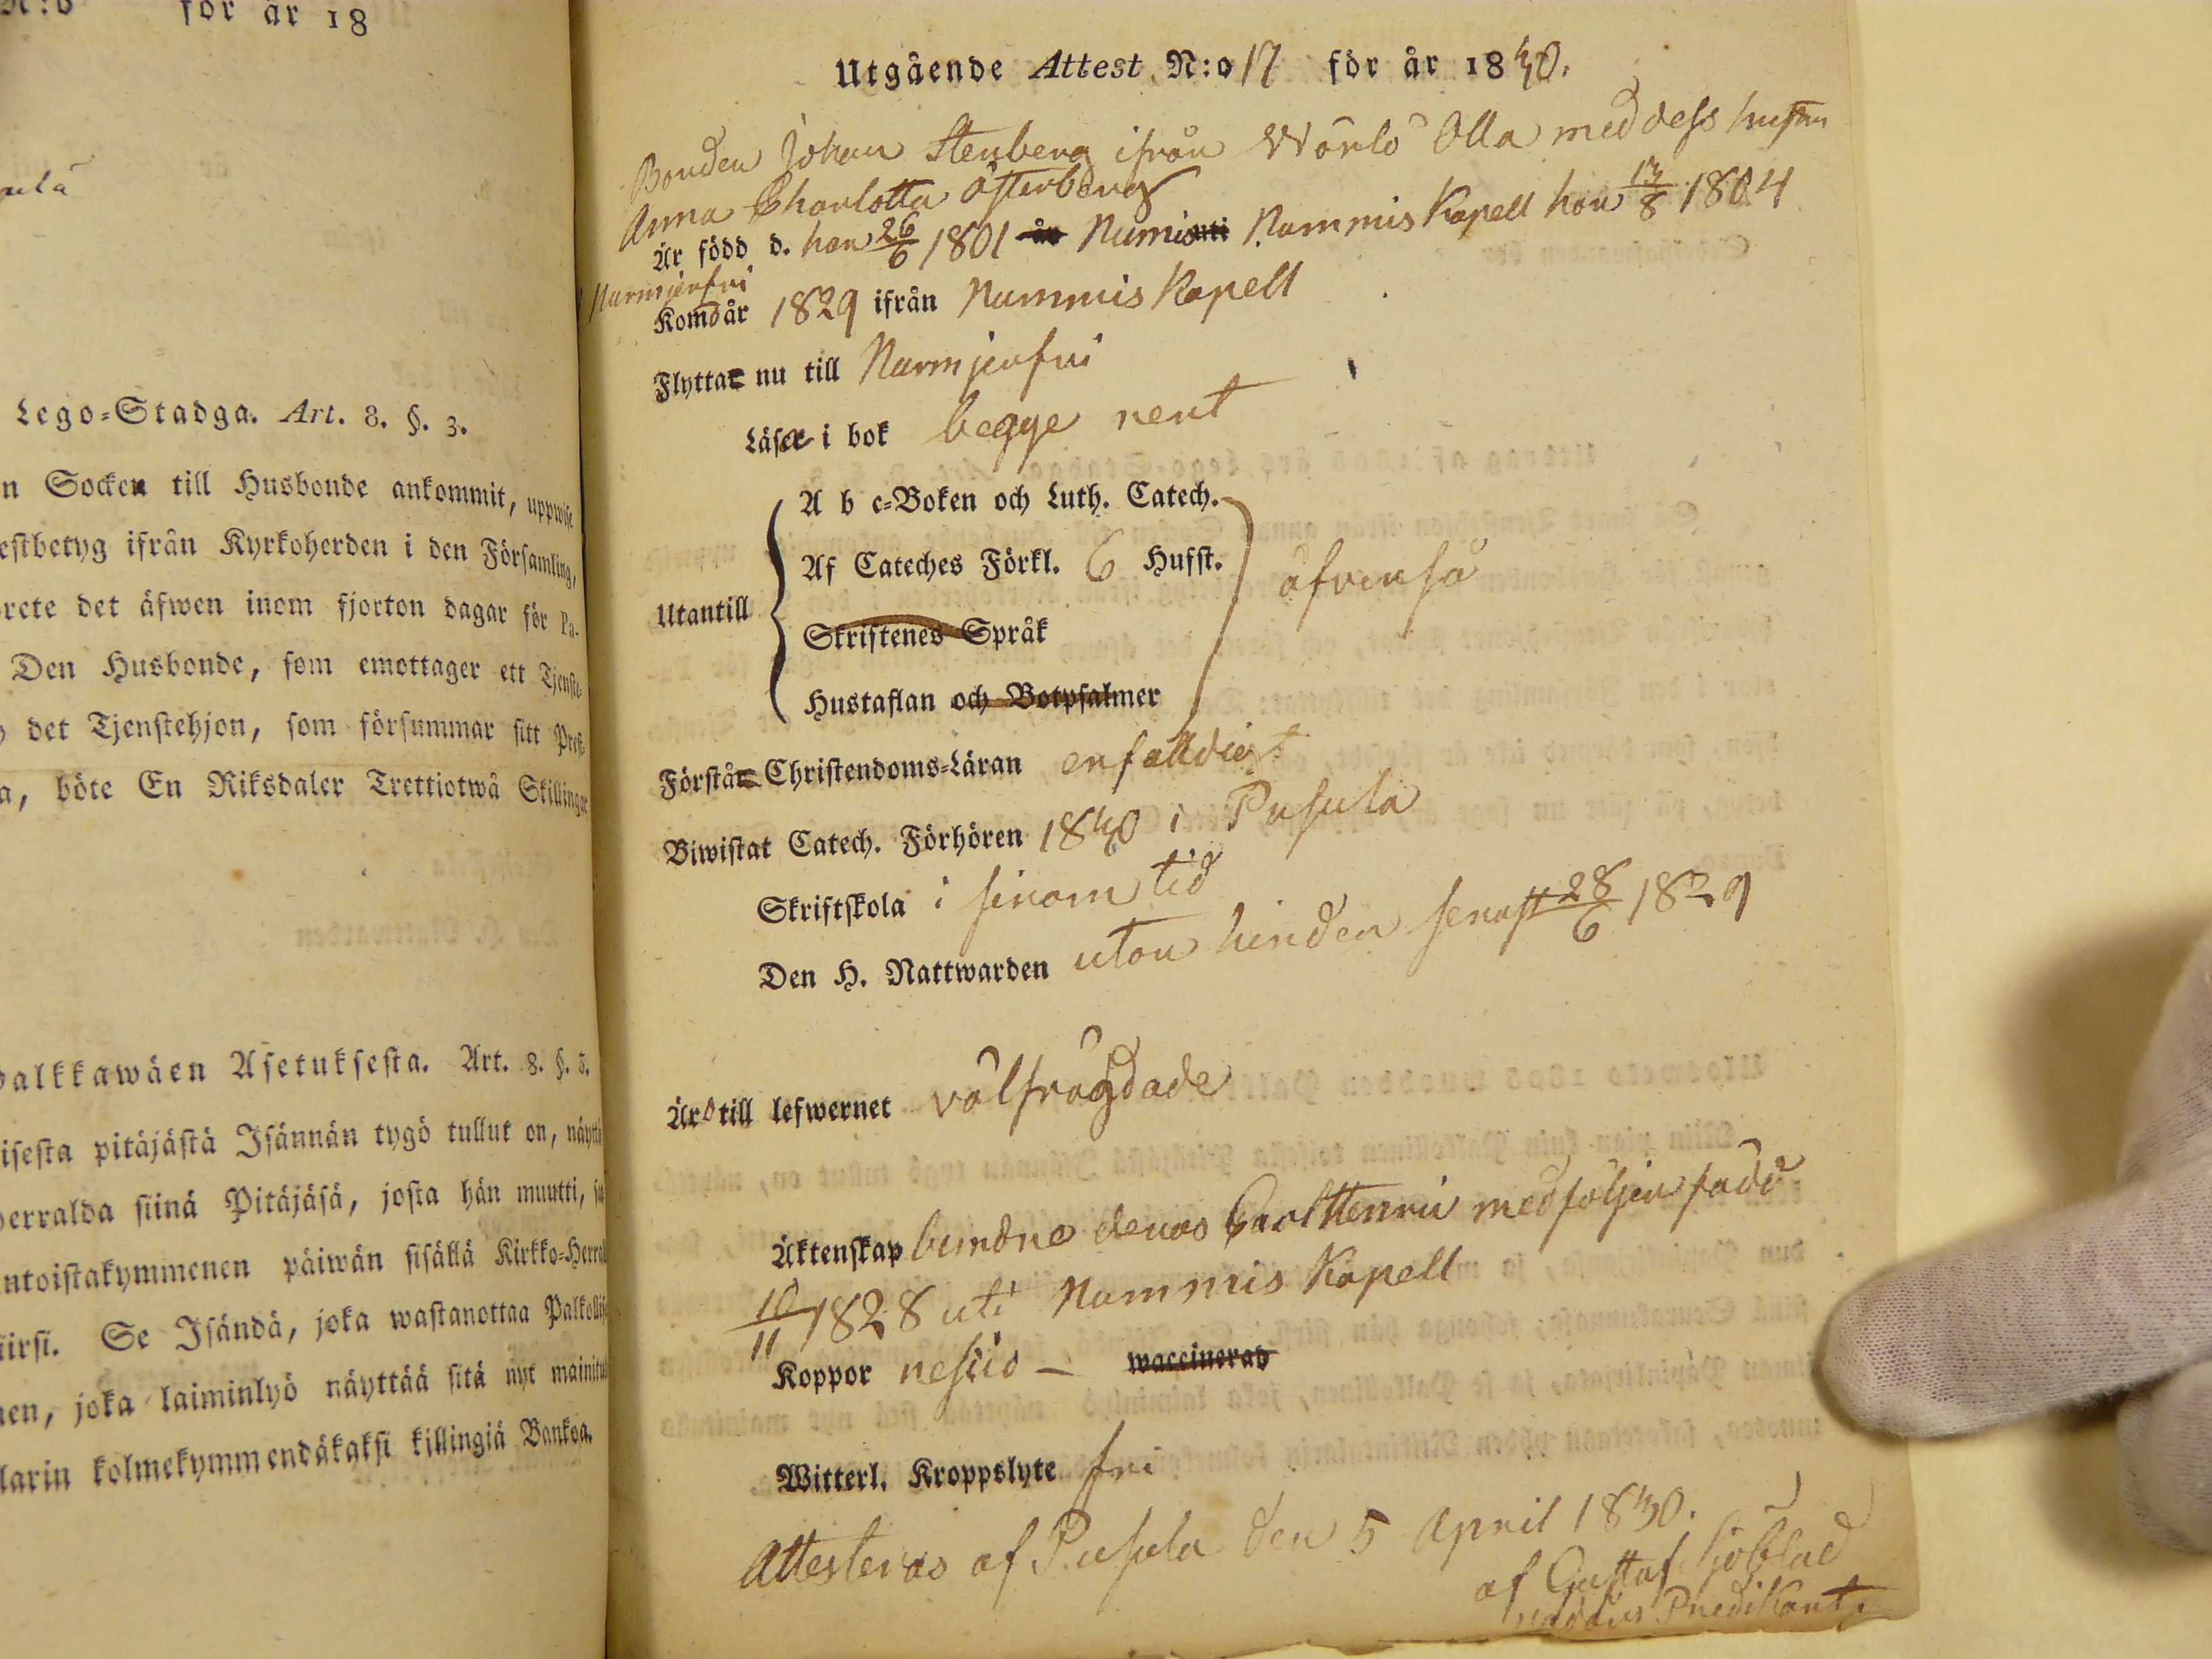 N:o för år 18
Lego-Stadga. Art. 8. §. 3.
n Socken till Husbonde ankommit, uppwise
estbetyg ifrån Kyrkoherden i den Församling,
rete det äfwen inom fjorton dagar för Pa-
Den Husbonde, som emottager ett Tjenste-
det Tjenstehjon, som försummar sitt Prest-
a, böte En Riksdaler Trettiotwå Skillingar
alkkawäen Asetuksesta. Art. 8. §. 3.
isesta pitäjästä Isännän tygö tullut on, näyttä
erralda siinä Pitäjäsä, josta hän muutti,
ntoistakymmenen päiwän sisällä Kirkko-Herral
iirsi. Se Isändä, joka wastanottaa Palkollis
en, joka laiminlyö näyttää sitä nyt mainitu
larin kolmekymmendäkaksi killingiä Bankoa.
Utgående Attest N:o 17 för år 1830.
Bonden Johan Stenberg ifrån Wörlö Olla med dess hustru
Anna Charlotta Österberg
Är född d. han 26/6 1801 Nummis Kapell hon 13/8 1804
Nurmijerfvi
Komd år 1829 ifrån Nummis Kapell
Flyttar nu till Nurmijerfvi
Läser i bok begge rent
A b c-Boken och Luth. Catech.
Af Cateches Förkl. 6 Hufst. äfvenså
Utantill
Skriftenes Språk
Hustaflan och Botpsalmer
Förstår Christendoms-Läran enfalldigt
Biwistat Catech. Förhören 1830 i Pusula
Skriftskola i sinom tid
Den H. Nattwarden utan hinder senast 28/6 1829
Äro till lefwernet välfrägdade
Äktenskap bundne deras Carl Henric medföljer född
10/11 1828 uti Nummis Kapell
Koppor waccinerad
Witterl. Kroppslyte fri
Attesteras af Pusula den 5 April 1830.
af Gustaf Sjöblad
Predikant.